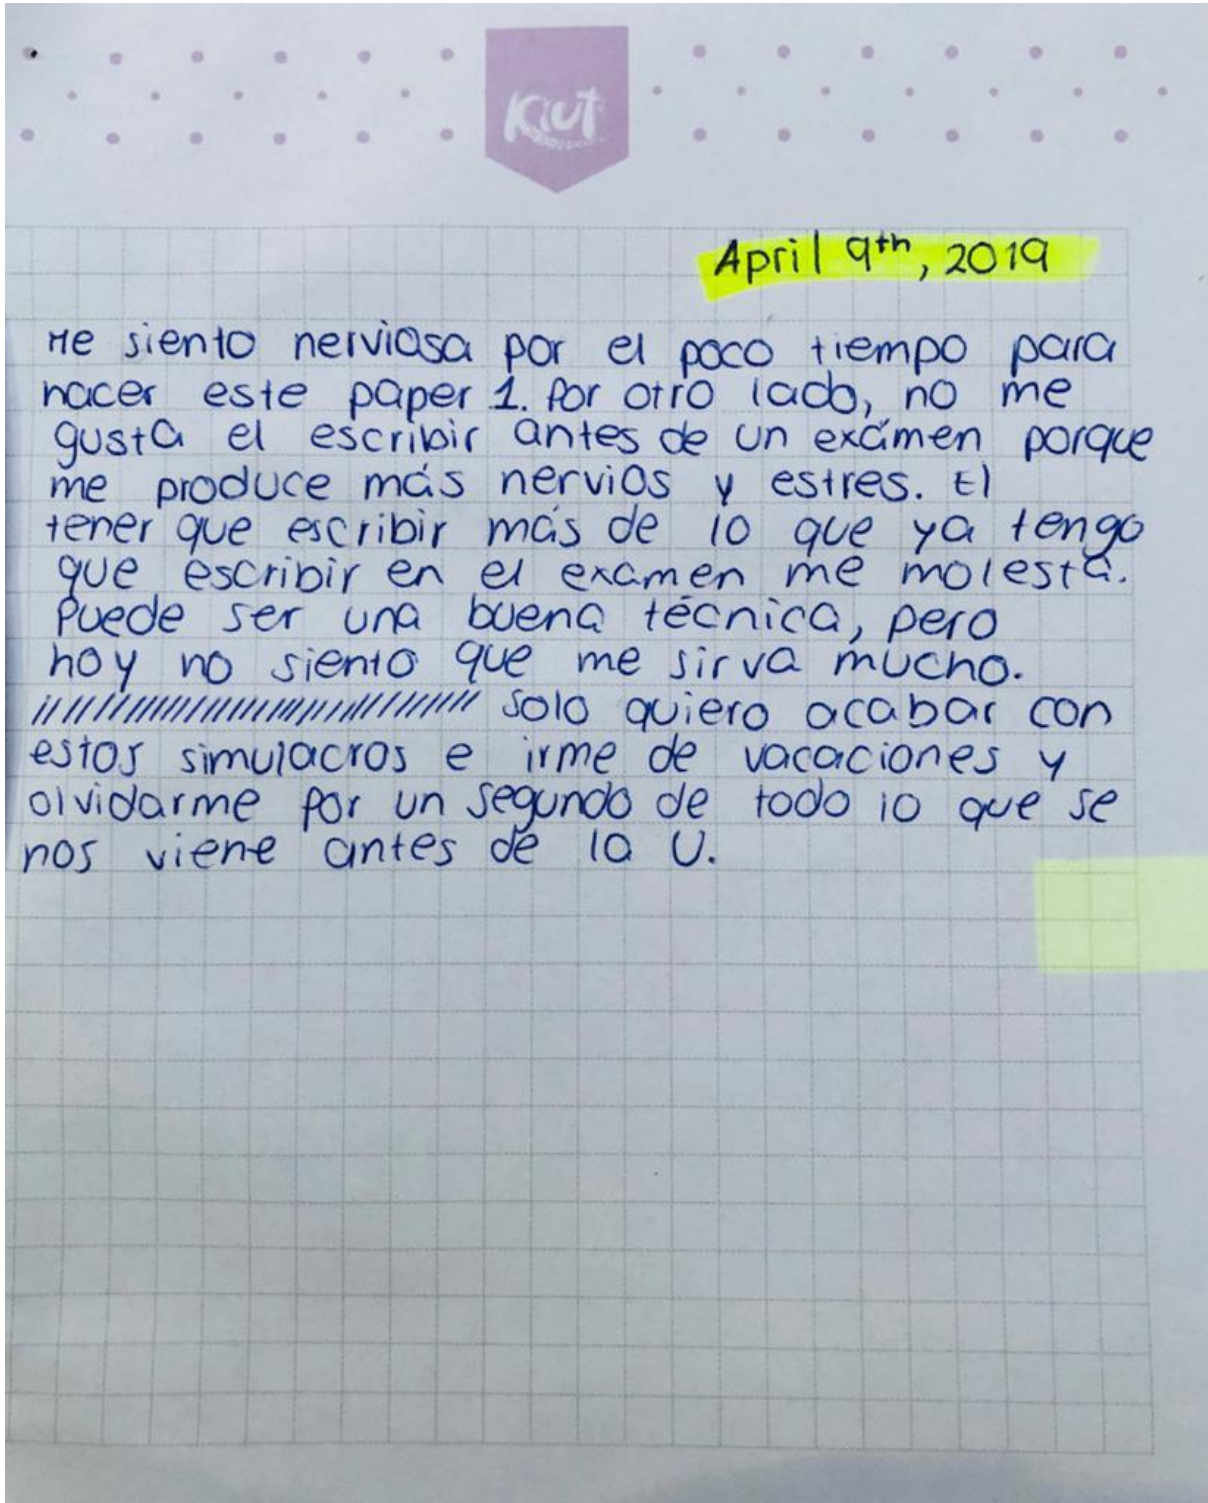 Kiut
April 9th, 2019
Me siento nerviosa por el poco tiempo para
hacer este paper 1. Por otro lado, no me
gusta el escribir antes de un exámen porque
me produce más nervios y estres. El
tener que escribir más de lo que ya tengo
que escribir en el examen me molesta.
Puede ser una buena técnica, pero
hoy no siento que me sirva mucho.
solo quiero acabar con
estos simulacros e irme de vacaciones y
olvidarme por un segundo de todo lo que se
nos viene antes de la U.